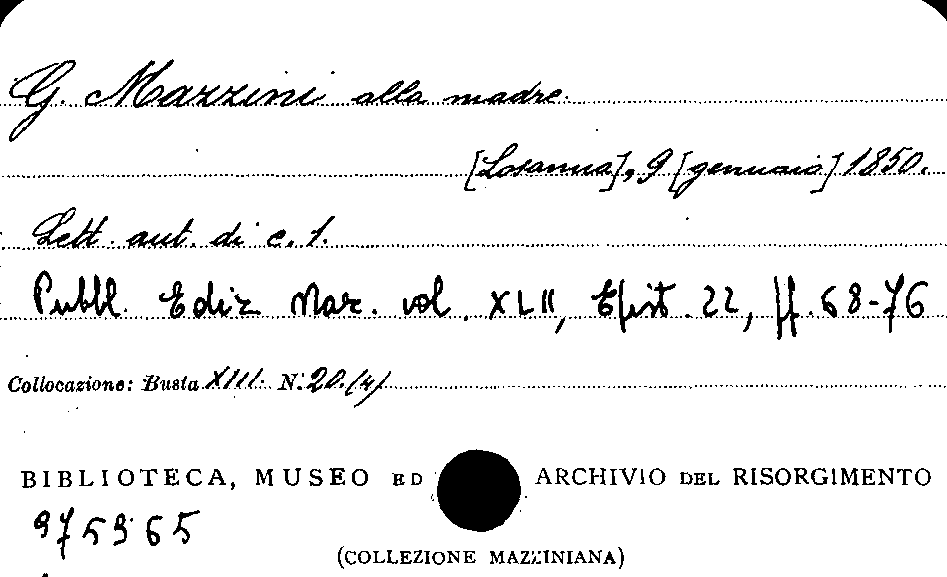 G. Mazzini alla madre.
[Losanna], 9 [gennaio] 1850.
Lett. aut. di c. 1.
Pubbl. Ediz. Naz. vol. XLII, Epist. 22, pp. 68-76
Collocazione: Busta XIII. N. 20.(4)
BIBLIOTECA, MUSEO ED ARCHIVIO DEL RISORGIMENTO
975965
(COLLEZIONE MAZZINIANA)